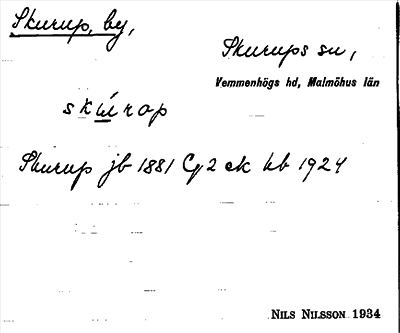 Skurup, by,
Skurups sn,
Vemmenhögs hd, Malmöhus län
skúrop
Skurup jb 1881 Cg2 ek kb 1924
NILS NILSSON 1934